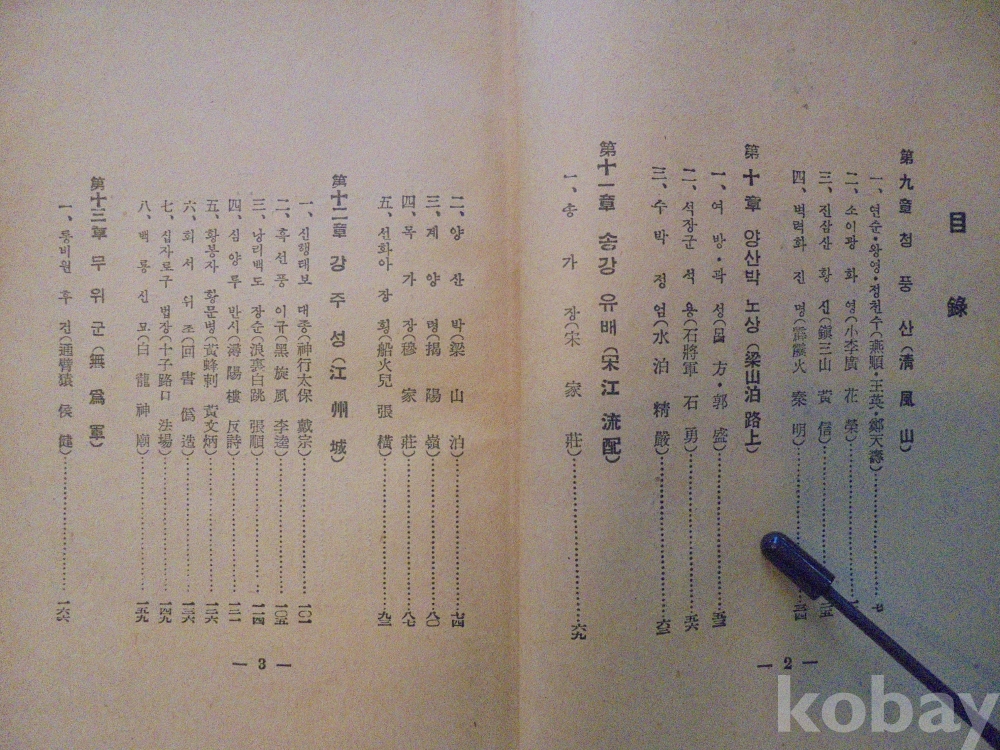 目錄
第九章 청풍산(淸風山)
一、연순·왕영·정천수(燕順·王英·鄭天壽)……七
二、소이광 화영(小李廣 花榮)
三、진삼산 황신(鎭三山 黃信)
四、벽력화 진명(霹靂火 秦明)
第十章 양산박 노상(梁山泊路上)
一、여방·곽성(呂方·郭盛)
二、석장군 석용(石將軍 石勇)……五六
三、수박 정엄(水泊 精嚴)……六三
第十一章 송강 유배(宋江 流配)
一、송가장(宋家莊)……六九
— 2 —
二、양산박(梁山泊)……七四
三、게양령(揭陽嶺)……八〇
四、목가장(穆家莊)……八七
五、선화아 장횡(船火兒 張橫)……九三
第十二章 강주성(江州城)
一、신행태보 대종(神行太保 戴宗)……一〇一
二、흑선풍 이규(黑旋風 李逵)……一〇五
三、낭리백도 장순(浪裏白跳 張順)……一一四
四、심양루 반시(潯陽樓 反詩)……一二一
五、황봉자 황문병(黃蜂刺 黃文炳)……一二六
六、회서 위조(回書 僞造)……一三六
七、십자로구 법장(十子路口 法場)……一四九
八、백룡신묘(白龍神廟)……一五九
第十三章 무위군(無爲軍)
一、통비원 후건(通臂猿 侯健)……一六六
— 3 —
kobay